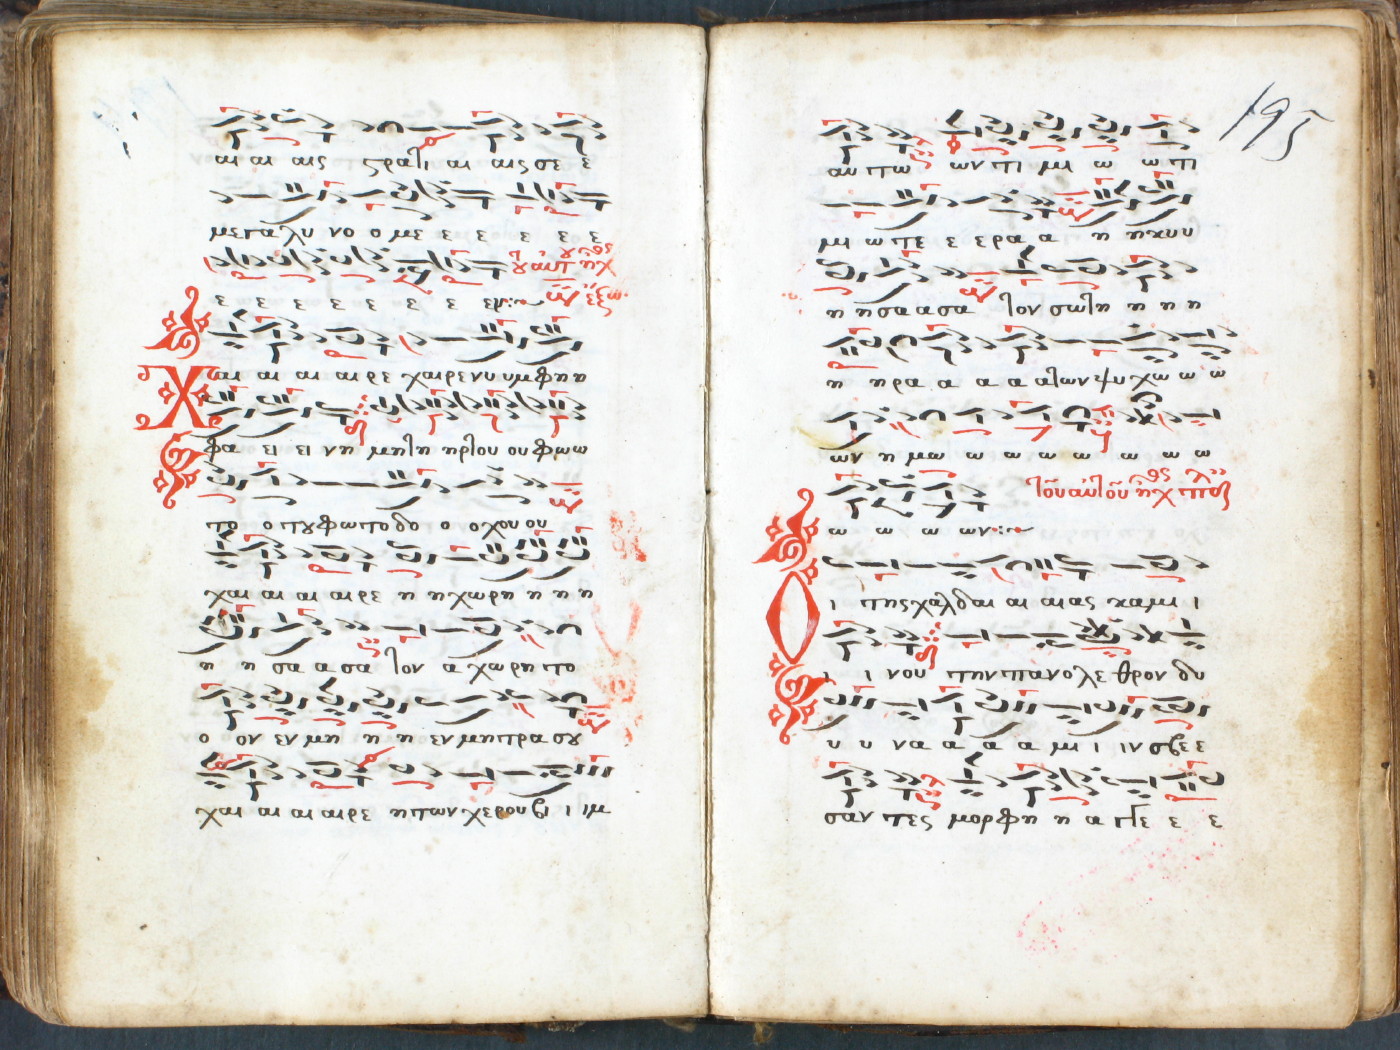 αι αι αις στρατι αι αις σε ε
μεγαλυ νο ο με ε ε ε ε ε
ε ε ε ε ε ε ε εν:
Χαι αι αι αι ρε χαιρε νυ υμφη η
φα ει ει νη μητη ηρ του ου φωω
το ο που φωτο δο ο ο χου ου
χαι αι αι αι ρε η η χωρη η η η
η η σα α σα τον α χωρητο
ο ον εν μη η η η εν μητρα σου
χαι αι αι αιρε η των χερουβ ι ιμ
195
αυ τω ων τι μι ω ω τι
μι ω τε ε ερα α η η κυυ
η η σα α σα τον σωτη η η η
η ηρα α α α α των ψυχω ω ω
ων η μω ω ω ω ω ω ω ω
τοῦ αὐτοῦ
ω ω ω ων:
Ο ι της χαλδαι αι αι ας καμι ι
ι ι νου την πανολε θρον δυ
υ υ να α α α μι ι ιν σβε ε
σαν τες μορφη η α τε ε ε